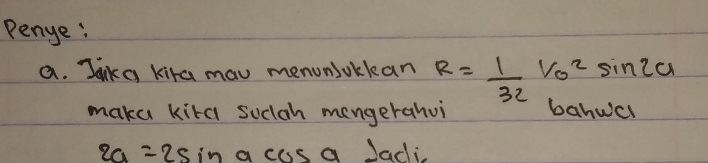 Penye :
a. Jika kita mau menunjukkan R = 1/32 Vo² sin2a
maka kita sudah mengetahui bahwa
2a = 2sin a cos a Jadi,